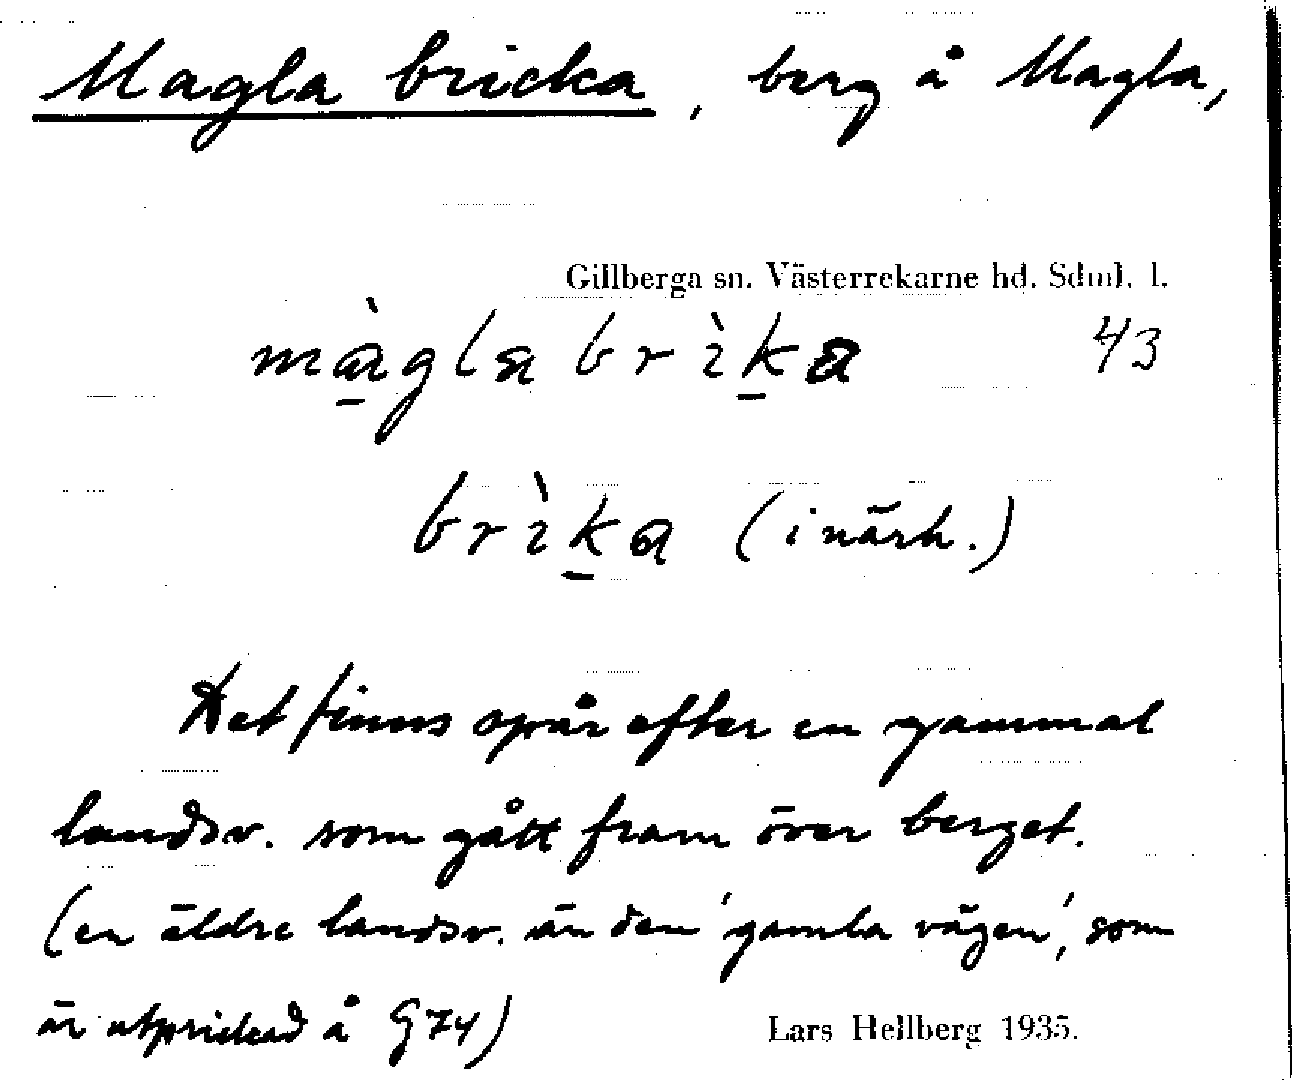 Magla bricka, berg å Magla,
Gillberga sn. Västerrekarne hd. Sdml. l.
màgla brìka 43
brìka (i närh.)
Det finns spår efter en gammal
landsv. som gått fram över berget.
(en äldre landsv. än den 'gamla vägen', som
är utprickad å G74)
Lars Hellberg 1935.